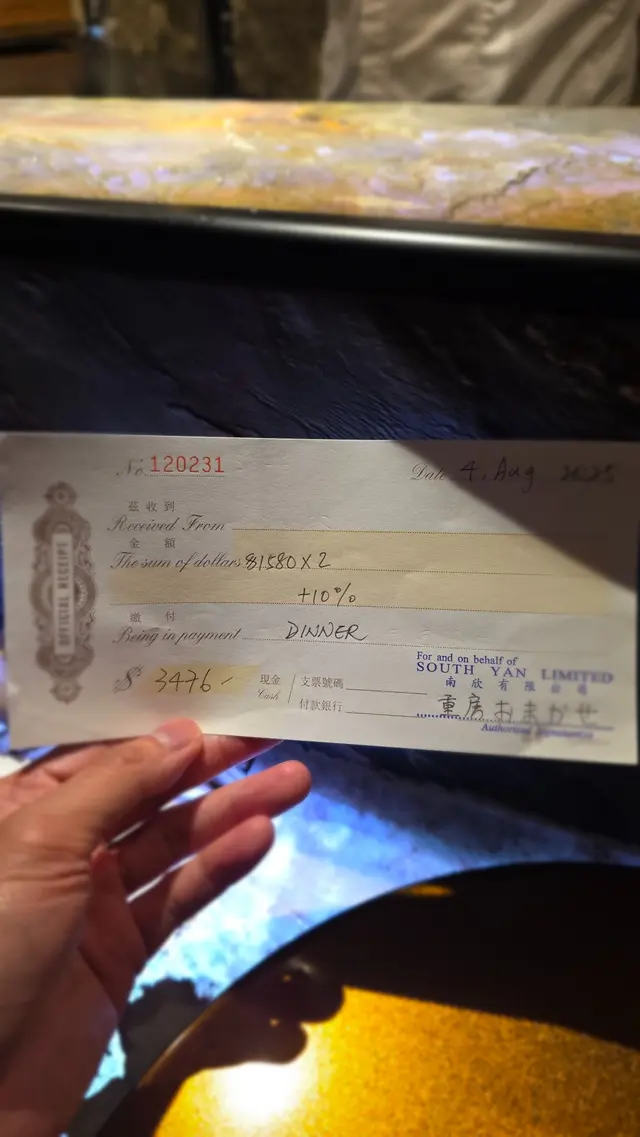 No. 120231
Date 4, Aug 2025
茲收到
Received From
金額
The sum of dollars $1580 X 2
+10%
繳付
Being in payment DINNER
OFFICIAL RECEIPT
$ 3476 -
現金
Cash
支票號碼
付款銀行
For and on behalf of
SOUTH YAN LIMITED
南欣有限公司
重房おまかせ
Authorized Signature(s)